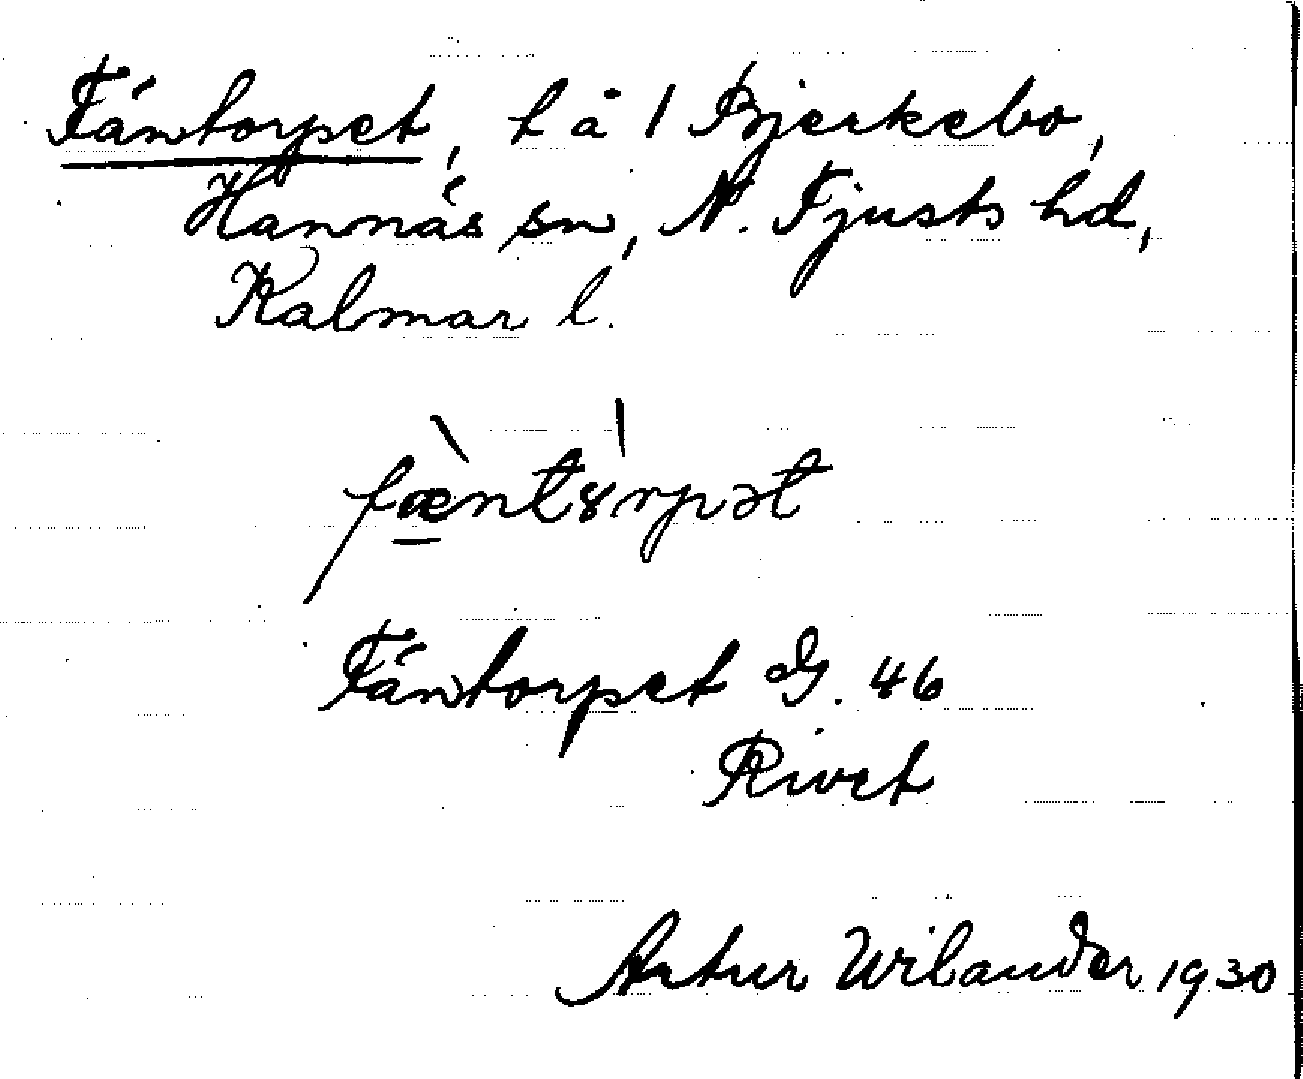 Fäntorpet, t å / Bjerkebo,
Hannäs sn, N. Tjusts hd,
Kalmar l.
fæ̱̀ntȣ́rpət
Fäntorpet G. 46
Rivet
Artur Wilander 1930